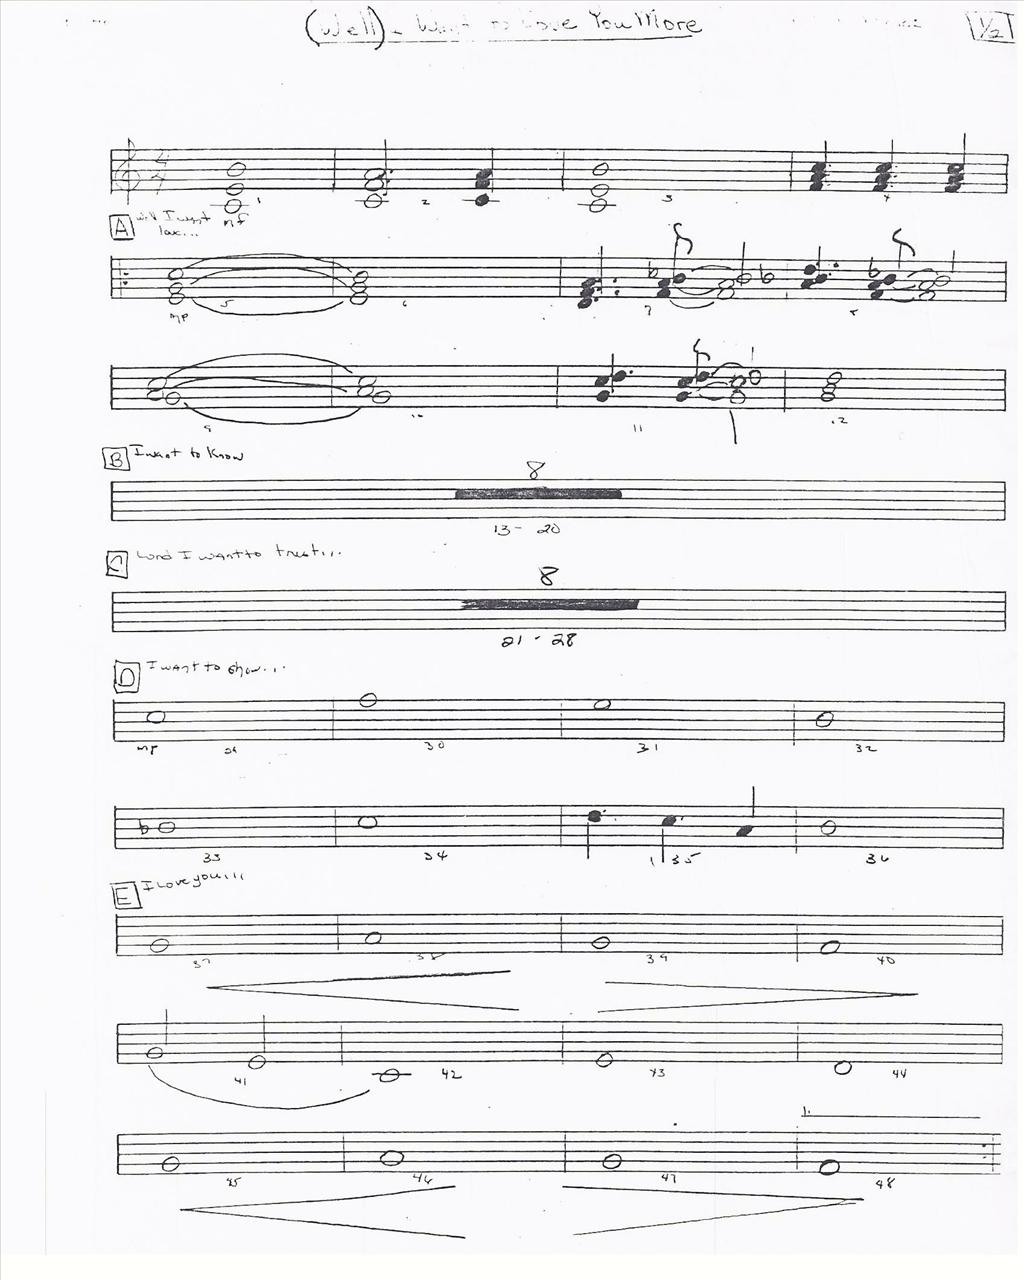 (Well) I Want to Love You More
1/2
4/4
1 2 3 4
A Well I want
mf
5 6 7 8
mp
9 10 11 12
B I want to know
8
13 - 20
C Lord I want to trust...
8
21 - 28
D I want to show...
mp 29 30 31 32
33 34 35 36
E I Love you...
37 38 39 40
41 42 43 44
1.
45 46 47 48